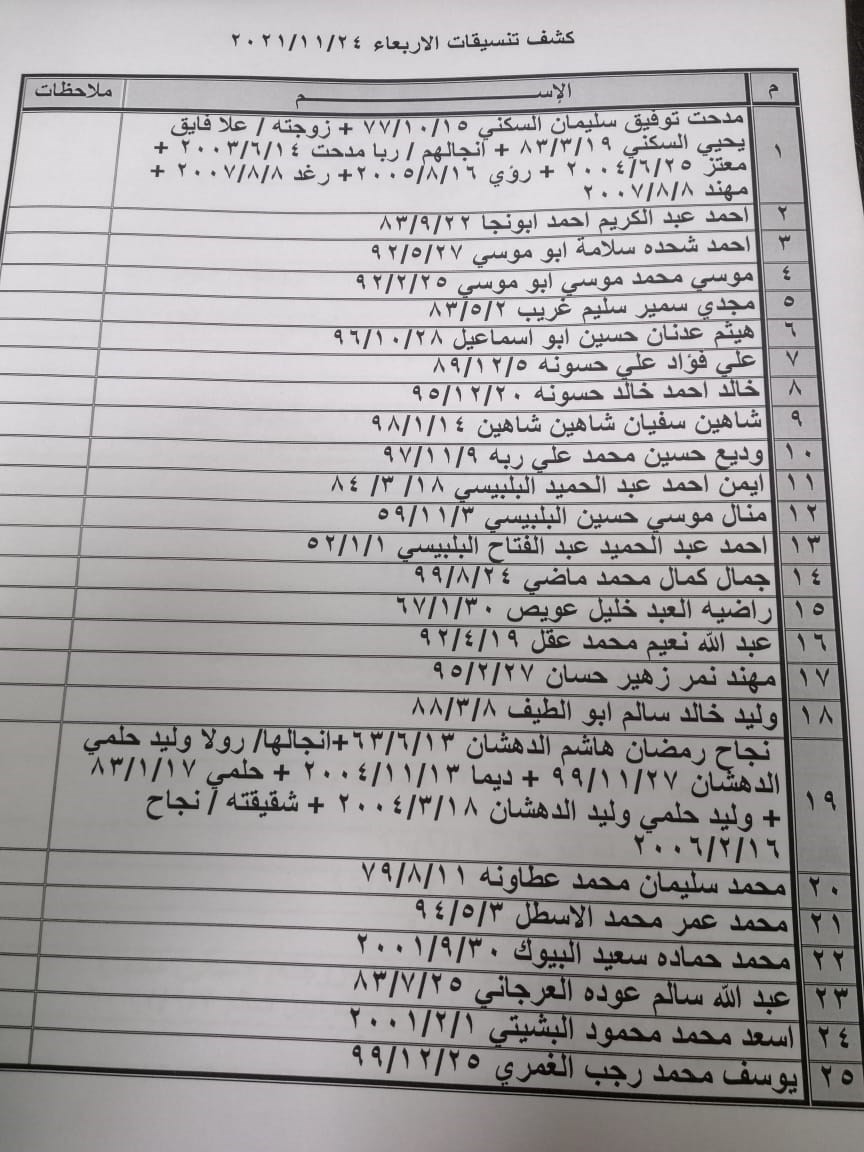 كشف تنسيقات الاربعاء ٢٠٢١/١١/٢٤
م الإســـــــم ملاحظات
١ مدحت توفيق سليمان السكني ٧٧/١٠/١٥ + زوجته / علا فايق
يحيي السكني ٨٣/٣/١٩ + انجالهم / ربا مدحت ٢٠٠٣/٦/١٤ +
معتز ٢٠٠٤/٦/٢٥ + رؤي ٢٠٠٥/٨/١٦+ رغد ٢٠٠٧/٨/٨ +
مهند ٢٠٠٧/٨/٨
٢ احمد عبد الكريم احمد ابونجا ٨٣/٩/٢٢
٣ احمد شحده سلامة ابو موسي ٩٢/٥/٢٧
٤ موسي محمد موسي ابو موسي ٩٢/٢/٢٥
٥ مجدي سمير سليم غريب ٨٣/٥/٢
٦ هيثم عدنان حسين ابو اسماعيل ٩٦/١٠/٢٨
٧ علي فؤاد علي حسونه ٨٩/١٢/٥
٨ خالد احمد خالد حسونه ٩٥/١٢/٢٠
٩ شاهين سفيان شاهين شاهين ٩٨/١/١٤
١٠ وديع حسين محمد علي ربه ٩٧/١١/٩
١١ ايمن احمد عبد الحميد البلبيسي ١٨/ ٣/ ٨٤
١٢ منال موسي حسين البلبيسي ٥٩/١١/٣
١٣ احمد عبد الحميد عبد الفتاح البلبيسي ٥٢/١/١
١٤ جمال كمال محمد ماضي ٩٩/٨/٢٤
١٥ راضيه العبد خليل عويص ٦٧/١/٣٠
١٦ عبد الله نعيم محمد عقل ٩٢/٤/١٩
١٧ مهند نمر زهير حسان ٩٥/٢/٢٧
١٨ وليد خالد سالم ابو الطيف ٨٨/٣/٨
١٩ نجاح رمضان هاشم الدهشان ٦٣/٦/١٣+انجالها/ رولا وليد حلمي
الدهشان ٩٩/١١/٢٧ + ديما ٢٠٠٤/١١/١٣ + حلمي ٨٣/١/١٧
+ وليد حلمي وليد الدهشان ٢٠٠٤/٣/١٨ + شقيقته / نجاح
٢٠٠٦/٢/١٦
٢٠ محمد سليمان محمد عطاونه ٧٩/٨/١١
٢١ محمد عمر محمد الاسطل ٩٤/٥/٣
٢٢ محمد حماده سعيد البيوك ٢٠٠١/٩/٣٠
٢٣ عبد الله سالم عوده العرجاني ٨٣/٧/٢٥
٢٤ اسعد محمد محمود البشيتي ٢٠٠١/٢/١
٢٥ يوسف محمد رجب الغمري ٩٩/١٢/٢٥